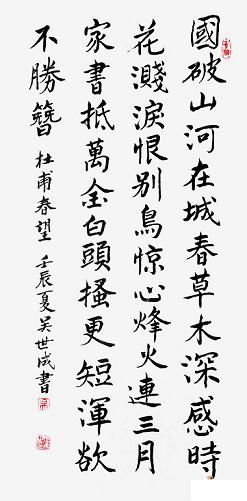 國破山河在城春草木深感時
花濺淚恨别鳥惊心烽火連三月
家書抵萬金白頭搔更短渾欲
不勝簪
杜甫春望 壬辰夏吴世成書